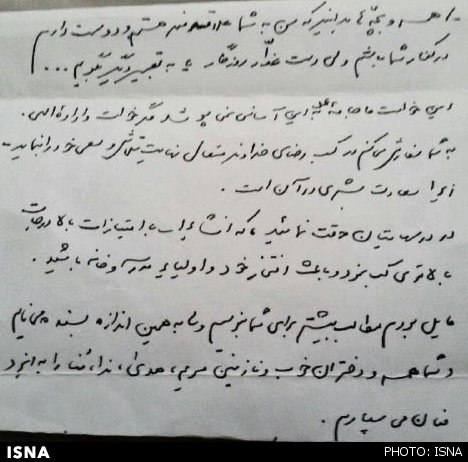 همسر و بچه‌ها بدانید که من به شما علاقه‌مند هستم و دوست دارم
در کنار شما باشم ولی دست غدّار روزگار یا به تعبیر دیگر بگویم ...
این خواست ما جامه این آسانی نمی پوشد مگر خواست و اراده الهی.
به شما سفارش می‌کنم در کسب رضای خداوند متعال نهایت تلاش و سعی خود را نمایید
زیرا سعادت بشری در آن است.
در درسهایتان دقت نمائید، که انشاءا... با امتیازات بالا درجات
بالاتری کسب نمود و باعث افتخار خود و اولیاء مدرسه و خانه باشید.
مایل بودم مطالب بیشتر برای شما بنویسم ولی به همین اندازه بسنده می‌نمایم
و شما همسر و دختران خوب و نازنینم مریم، هدی، ندا، ثنا را به ایزد
منان می سپارم.
ISNA
PHOTO: ISNA